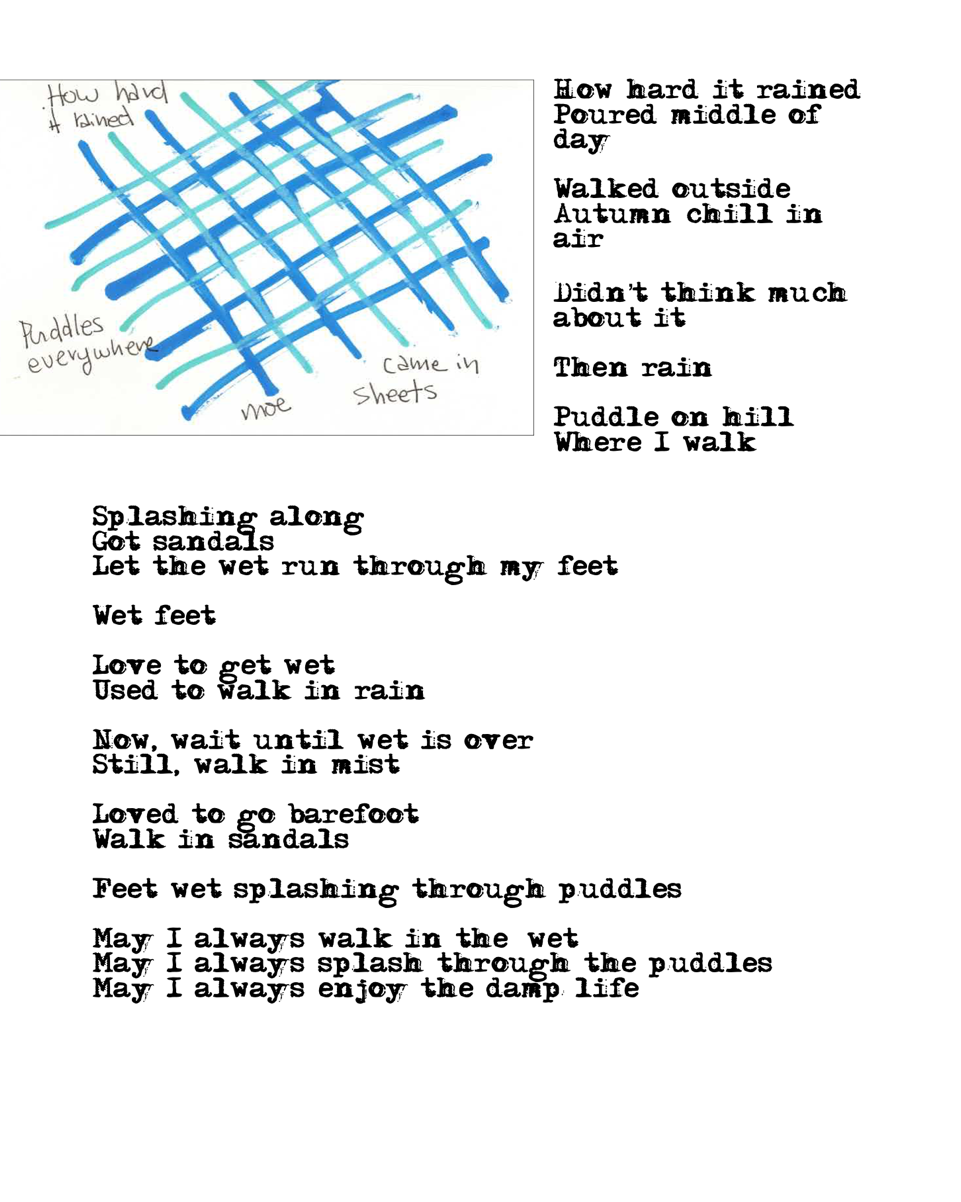 How hard
it rained
Puddles
everywhere
came in
sheets
moe
How hard it rained
Poured middle of
day
Walked outside
Autumn chill in
air
Didn't think much
about it
Then rain
Puddle on hill
Where I walk
Splashing along
Got sandals
Let the wet run through my feet
Wet feet
Love to get wet
Used to walk in rain
Now, wait until wet is over
Still, walk in mist
Loved to go barefoot
Walk in sandals
Feet wet splashing through puddles
May I always walk in the wet
May I always splash through the puddles
May I always enjoy the damp life